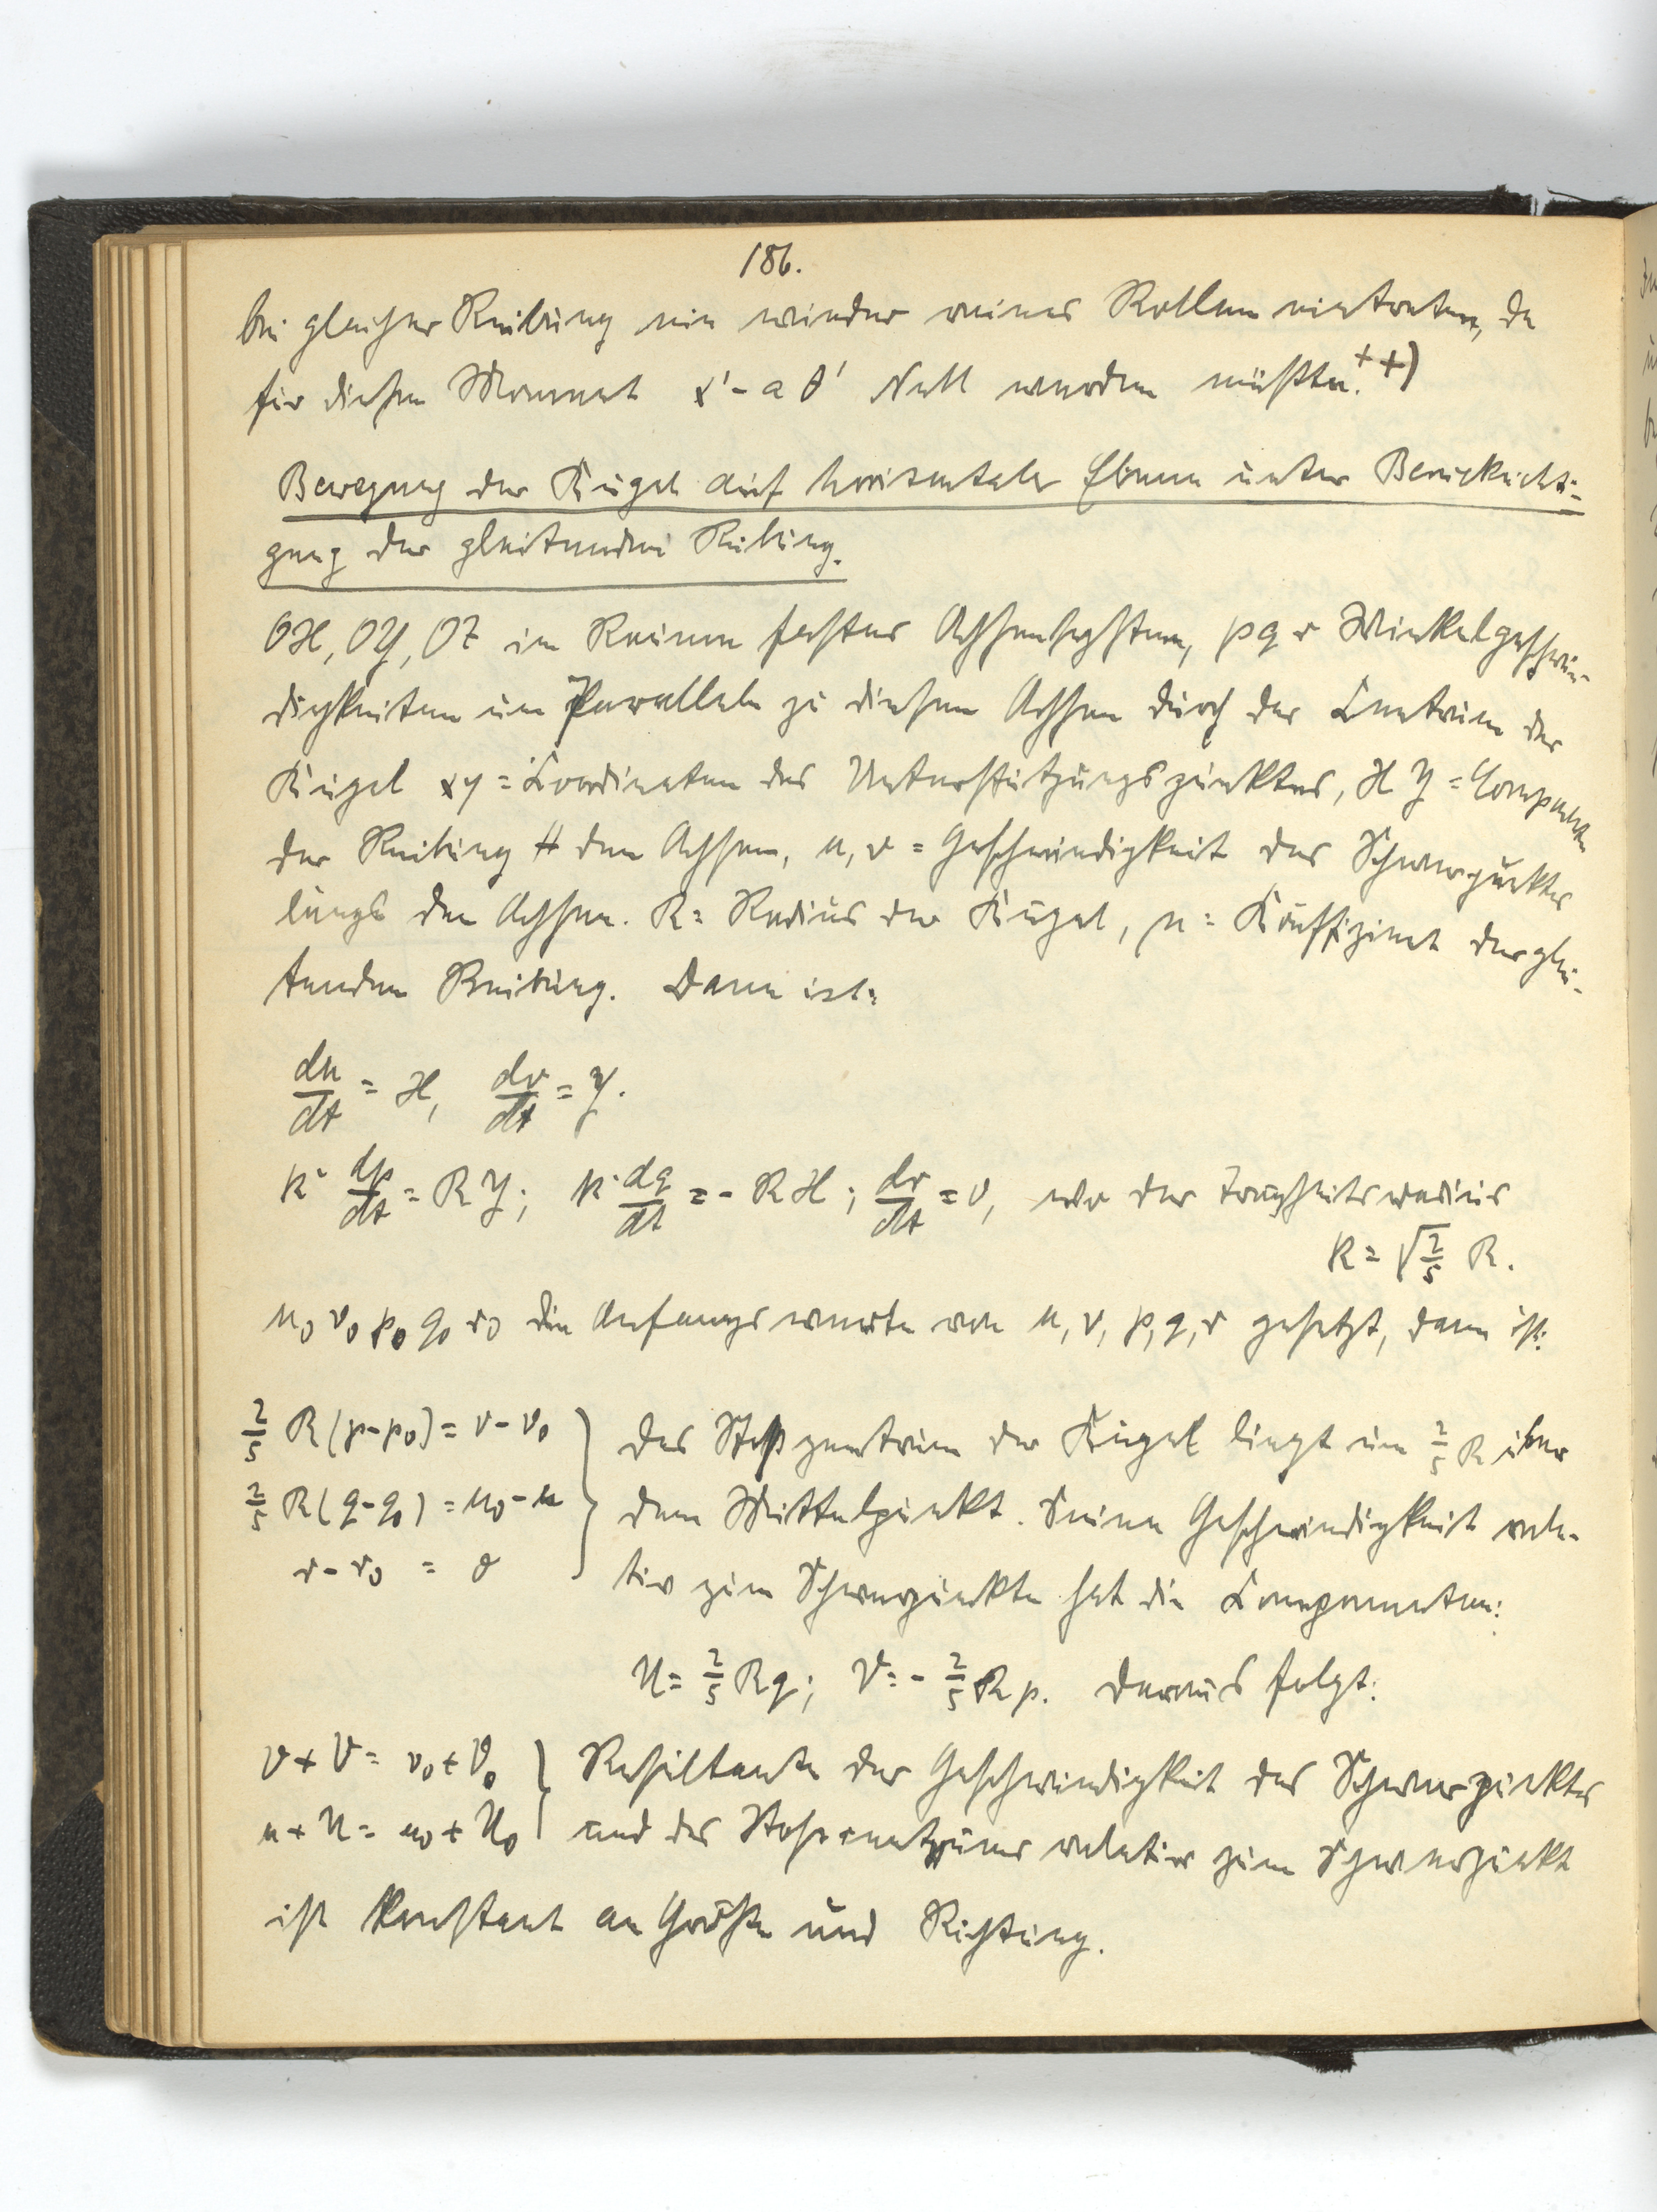 186.
bei gleicher Reibung nie wieder reines Rollen eintreten, da
für diesen Moment x' - a θ' Null werden müßte. ++)
Bewegung der Kugel auf horizontaler Ebene unter Berücksichti=
gung der gleitenden Reibung.
OX, OY, OZ im Raume festes Achsensystem, p q r Winkelgeschwin-
digkeiten um Parallele zu diesen Achsen durch das Centrum der
Kugel xy = Coordinaten des Unterstützungspunktes, X Y = Componenten
der Reibung # den Achsen, u, v = Geschwindigkeit des Schwerpunktes
längs den Achsen. R = Radius der Kugel, μ = Koeffizient der glei-
tenden Reibung. Dann ist:
du/dt = X, dv/dt = Y.
k² dp/dt = R Y; k² dq/dt = - R X; dr/dt = 0, wo der Trägheitsradius
k = √2/5 R.
u₀ v₀ p₀ q₀ r₀ die Anfangswerte von u, v, p, q, r gesetzt, dann ist:
2/5 R (p - p₀) = v - v₀ } Das Stoßzentrum der Kugel liegt um 2/5 R über
2/5 R (q - q₀) = u₀ - u } dem Mittelpunkt. Seine Geschwindigkeit rela-
r - r₀ = 0 } tiv zum Schwerpunkte hat die Componenten:
U = 2/5 R q; V = - 2/5 R p. Daraus folgt:
v + V = v₀ + V₀ } Resultante der Geschwindigkeit des Schwerpunktes
u + U = u₀ + U₀ } und des Stoßzentrums relativ zum Schwerpunkt
ist konstant an Größe und Richtung.